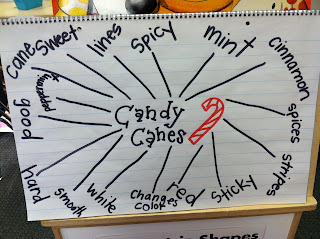 Candy
Canes
cane
sweet
lines
spicy
mint
cinnamon
spices
stripes
sticky
red
changes
color
white
smooth
hard
good
peppermint
Shapes